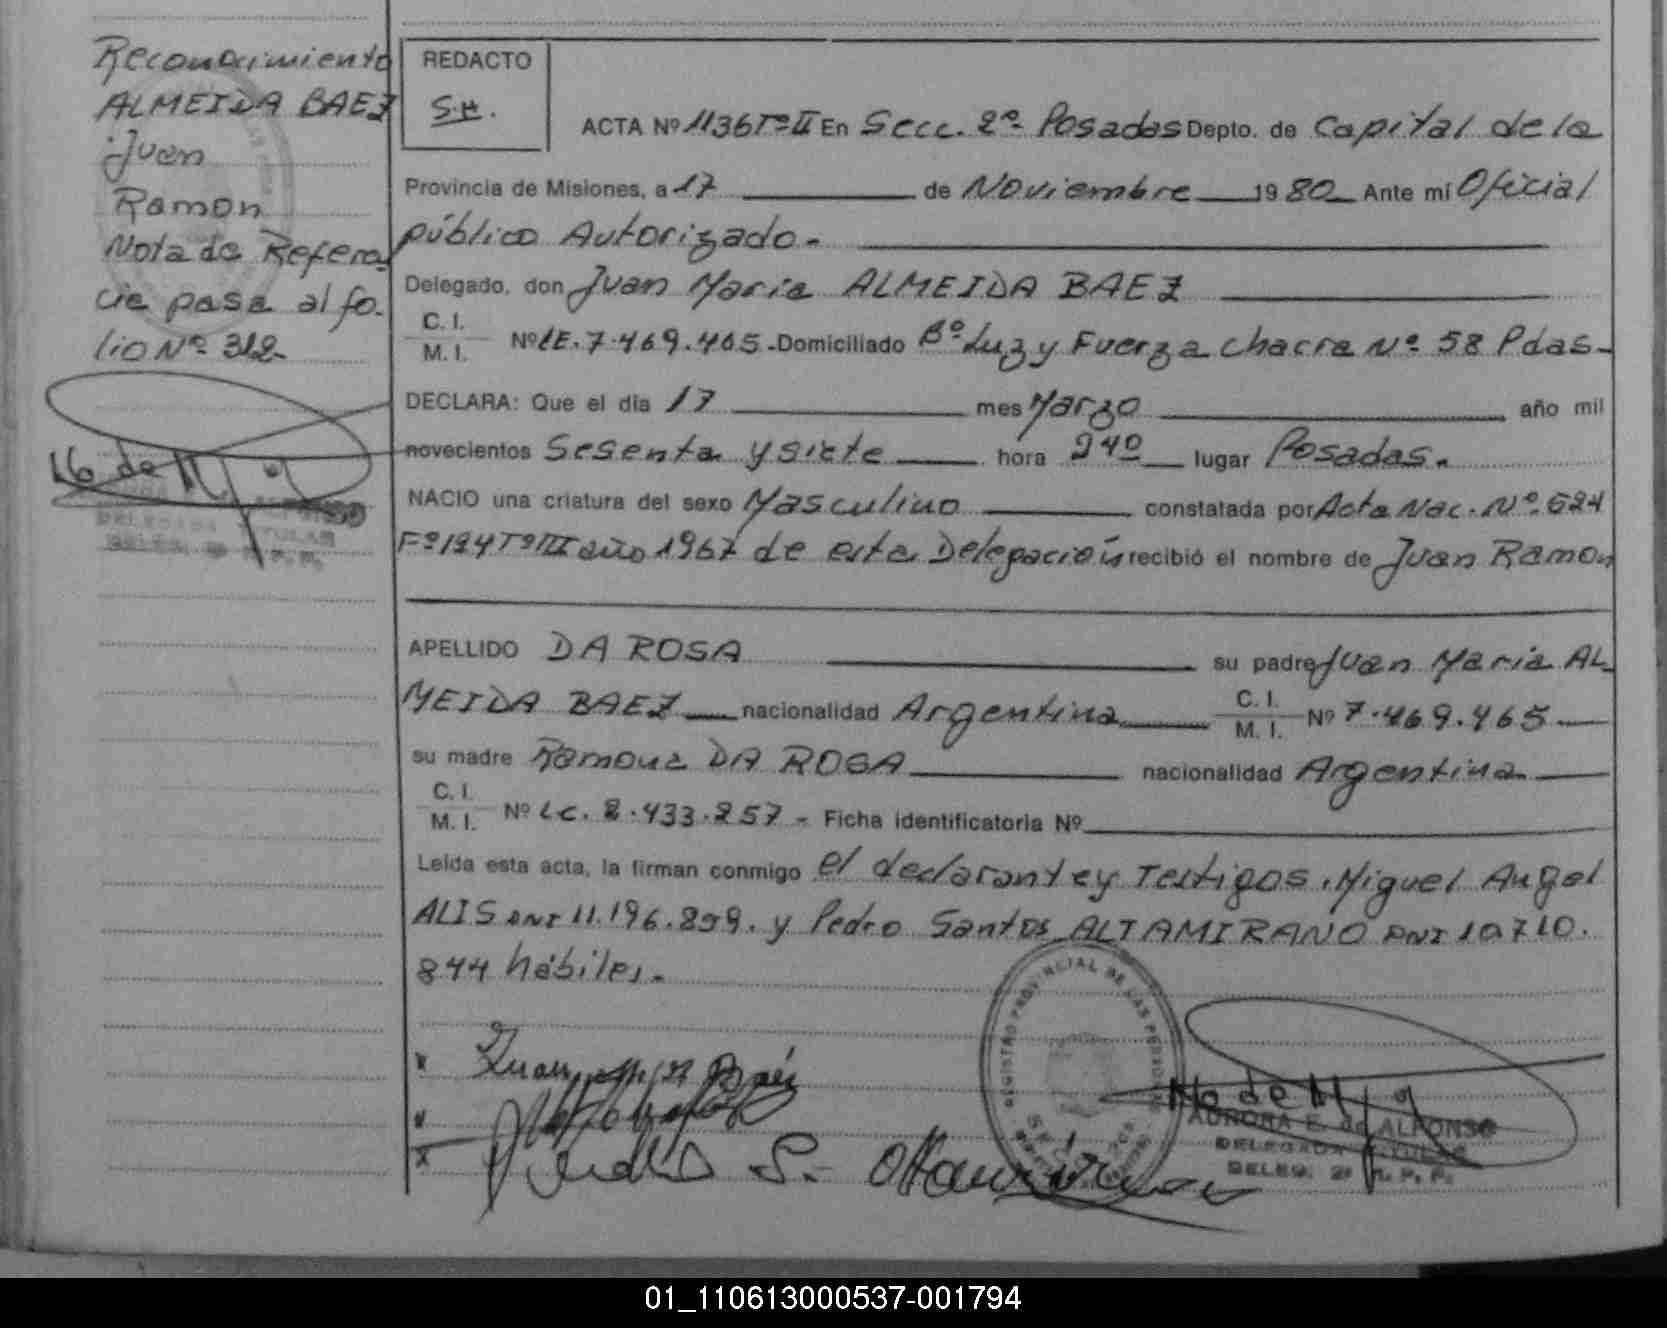 Reconocimiento
ALMEIDA BAEZ
Juan
Ramon
Nota de Referen
cia pasa al fo-
lio Nº 312-
DELEGADA TITULAR
DELEG. 2ª R. P. P.
REDACTO
S.H.
ACTA Nº 1136 Tº II En Secc. 2º Posadas Depto. de Capital de la
Provincia de Misiones, a 17 de Noviembre 1980 Ante mí Oficial
público Autorizado.
Delegado, don Juan Maria ALMEIDA BAEZ
C. I.
M. I. Nº LE. 7.469.465.- Domiciliado Bº Luz y Fuerza chacra Nº 58 Pdas-
DECLARA: Que el día 17 mes Marzo año mil
novecientos Sesenta y siete hora 24º lugar Posadas.
NACIO una criatura del sexo Masculino constatada por Acta Nac. Nº 624
Fº 194 Tº III año 1967 de esta Delegación recibió el nombre de Juan Ramon
APELLIDO DA ROSA su padre Juan Maria AL
MEIDA BAEZ nacionalidad Argentina C. I.
M. I. Nº 7.469.465
su madre Ramona DA ROSA nacionalidad Argentina
C. I.
M. I. Nº LC. 2.433.257 - Ficha identificatoria Nº
Leída esta acta, la firman conmigo el declarante y Testigos. Miguel Angel
ALIS DNI 11.196.899. y Pedro Santos ALTAMIRANO DNI 10.710.
844 hábiles.
REGISTRO PROVINCIAL DE LAS PERSONAS
AURORA E. de ALFONSO
DELEGADA TITULAR
DELEG. 2ª R. P. P.
01_110613000537-001794